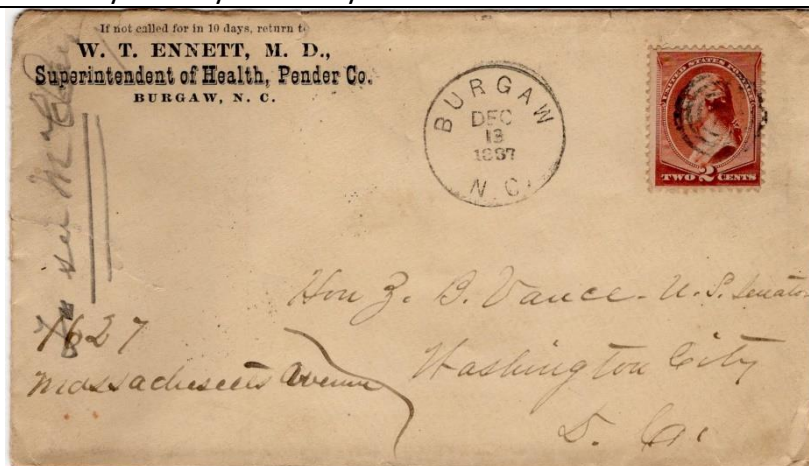 If not called for in 10 days, return to
W. T. ENNETT, M. D.,
Superintendent of Health, Pender Co.
BURGAW, N. C.
BURGAW
DEC
13
1887
N. C.
UNITED STATES POSTAGE
TWO 2 CENTS
Hon Z. B. Vance - U. S. Senator
Washington City
D. C.
1627
Massachusetts Avenue